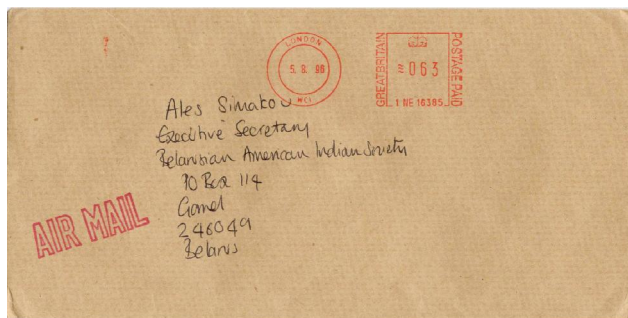 LONDON
5. 8. 98
WC1
GREAT BRITAIN
063
POSTAGE PAID
1 NE 16385
Ales Simakou
Executive Secretary
Belarusian American Indian Society
PO Box 114
Gomel
246049
Belarus
AIR MAIL